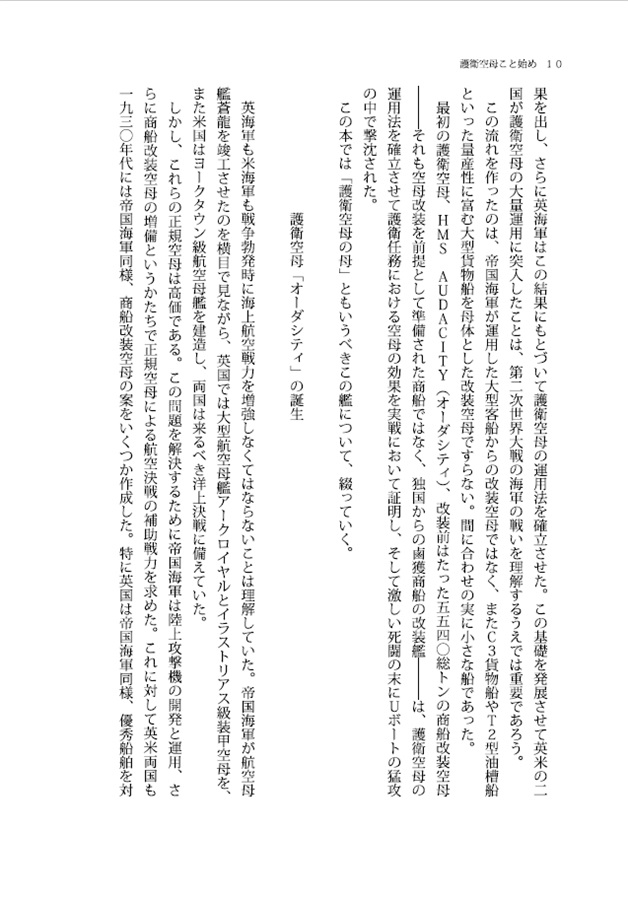 護衛空母こと始め 10
果を出し、さらに英海軍はこの結果にもとづいて護衛空母の運用法を確立させた。この基礎を発展させて英米の二
国が護衛空母の大量運用に突入したことは、第二次世界大戦の海軍の戦いを理解するうえでは重要であろう。
　この流れを作ったのは、帝国海軍が運用した大型客船からの改装空母ではなく、またC3貨物船やT2型油槽船
といった量産性に富む大型貨物船を母体とした改装空母ですらない。間に合わせの実に小さな船であった。
　最初の護衛空母、HMS AUDACITY（オーダシティ）、改装前はたった五五四〇総トンの商船改装空母
――それも空母改装を前提として準備された商船ではなく、独国からの鹵獲商船の改装艦――は、護衛空母の
運用法を確立させて護衛任務における空母の効果を実戦において証明し、そして激しい死闘の末にUボートの猛攻
の中で撃沈された。
　この本では「護衛空母の母」ともいうべきこの艦について、綴っていく。
護衛空母「オーダシティ」の誕生
　英海軍も米海軍も戦争勃発時に海上航空戦力を増強しなくてはならないことは理解していた。帝国海軍が航空母
艦蒼龍を竣工させたのを横目で見ながら、英国では大型航空母艦アークロイヤルとイラストリアス級装甲空母を、
また米国はヨークタウン級航空母艦を建造し、両国は来るべき洋上決戦に備えていた。
　しかし、これらの正規空母は高価である。この問題を解決するために帝国海軍は陸上攻撃機の開発と運用、さ
らに商船改装空母の増備というかたちで正規空母による航空決戦の補助戦力を求めた。これに対して英米両国も
一九三〇年代には帝国海軍同様、商船改装空母の案をいくつか作成した。特に英国は帝国海軍同様、優秀船舶を対